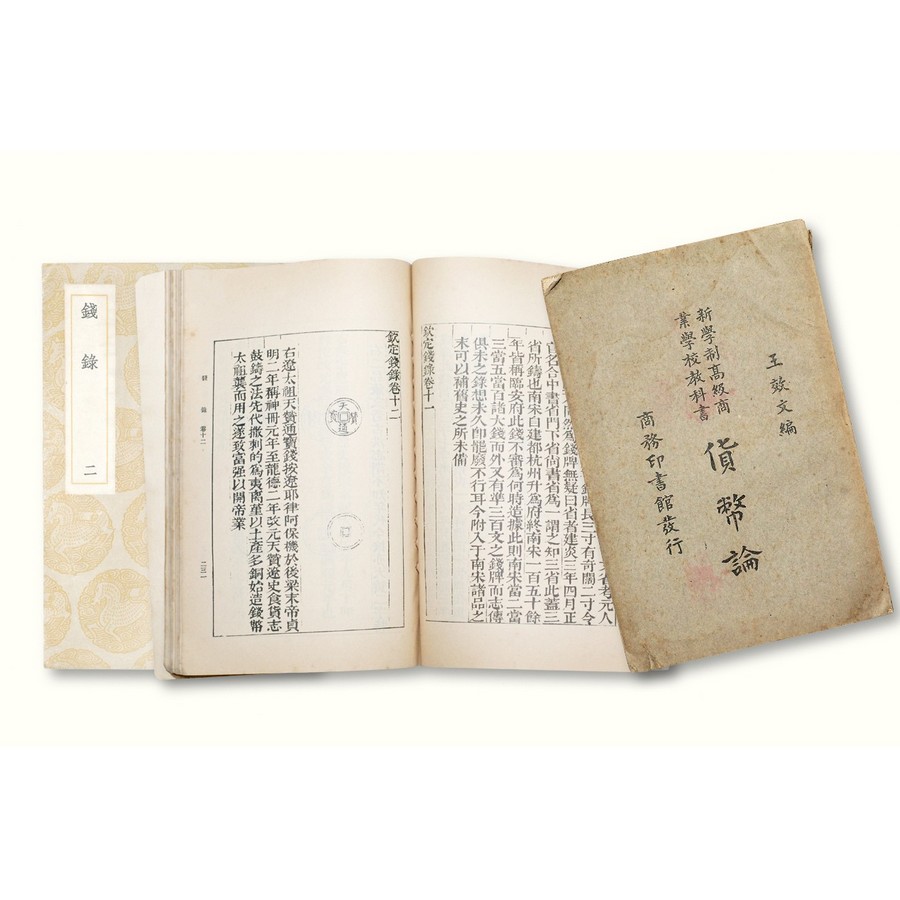 錢錄
二
欽定錢錄卷十二
天贊通寶
右遼太祖天贊通寶錢按遼耶律阿保機於後梁末帝貞
明二年稱神冊元年至龍德二年改元天贊遼史食貨志
鼓鑄之法先代撒剌的為夷离堇以土產多銅始造錢幣
太祖襲而用之遂致富强以開帝業
錢錄 卷十二
二三一
省所鑄也南宋自建都杭州升為府終南宋一百五十餘
年皆稱臨安府此錢不審為何時造據此則南宋當二當
三當五當百諸大錢而外又有準三百文之錢牌而志傳
俱未之錄想未久卽罷廢不行耳今附入于南宋諸品之
末可以補舊史之所未備
欽定錢錄卷十一
王效文編
新學制高級商
業學校教科書
貨幣論
商務印書館發行